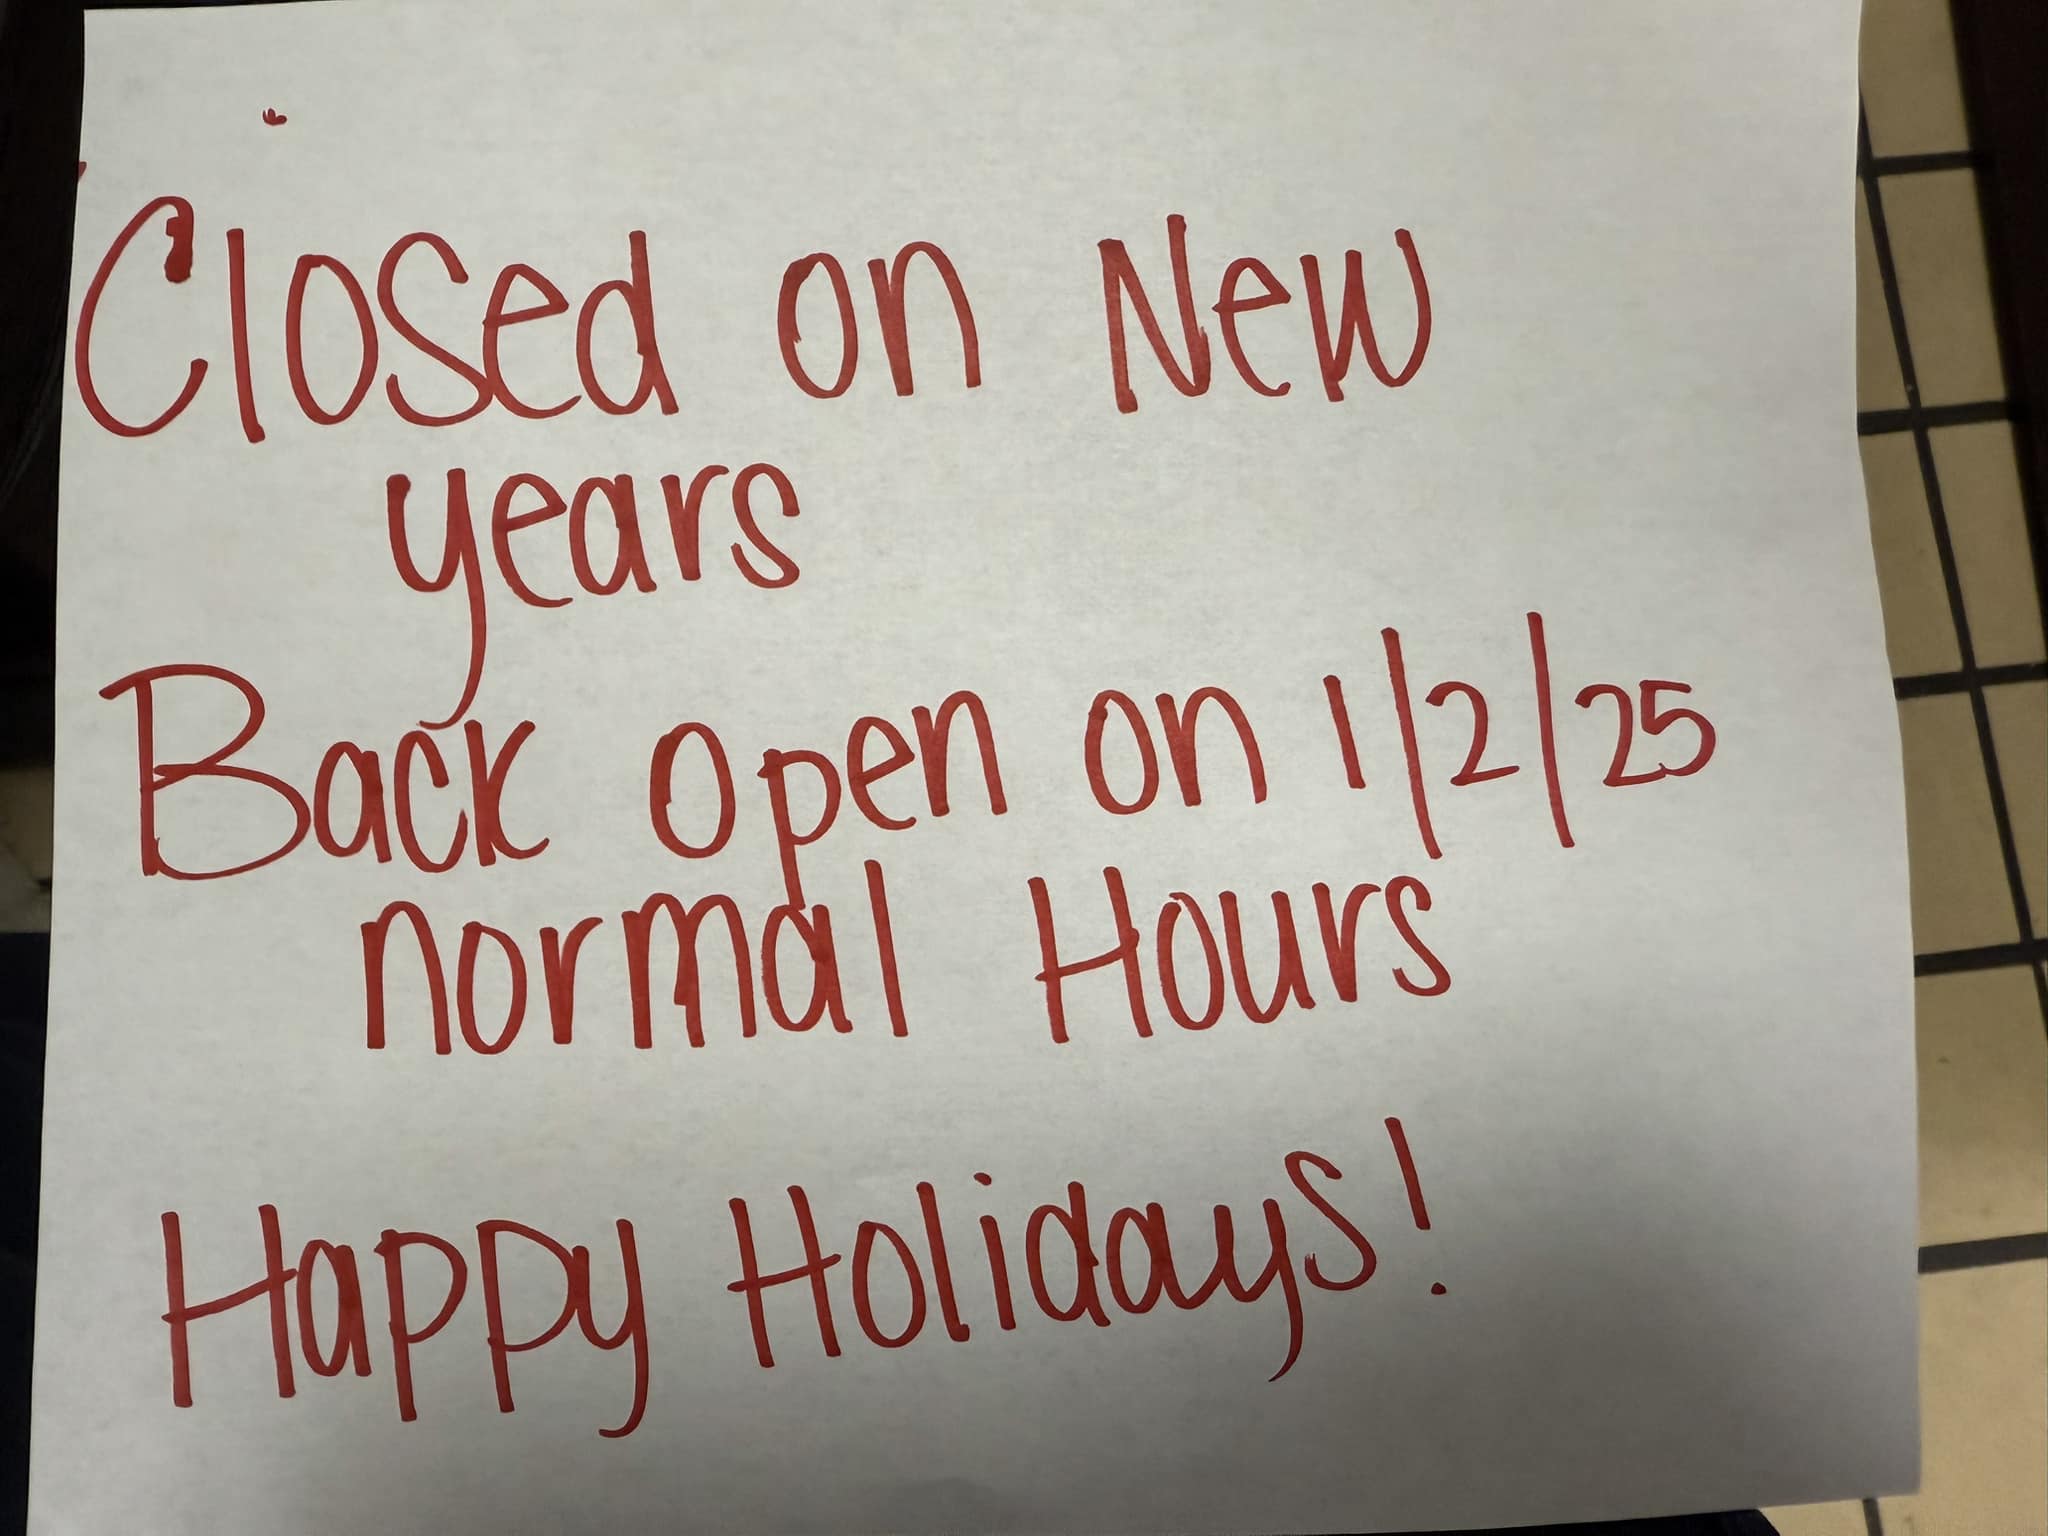 Closed on New
years
Back open on 1/2/25
normal Hours
Happy Holidays!